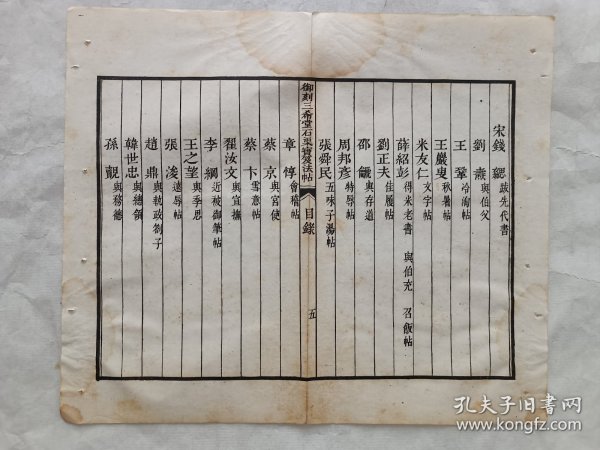 宋錢 勰 跋先代書
劉 燾 與伯父
王 鞏 冷淘帖
王巖叟 秋暑帖
米友仁 文字帖
薛紹彭 得米老書 與伯充 召飯帖
劉正夫 佳履帖
邵 䶵 與存道
周邦彥 特辱帖
張舜民 五味子湯帖
御刻三希堂石渠寶笈法帖 目錄 五
章 惇 會稽帖
蔡 京 與宮使
蔡 卞 雪意帖
翟汝文 與宣撫
李 綱 近被御筆帖
王之望 與季思
張 浚 遠辱帖
趙 鼎 與執政劄子
韓世忠 與總領
孫 覿 與務德
孔夫子旧書网
www.kongfz.com